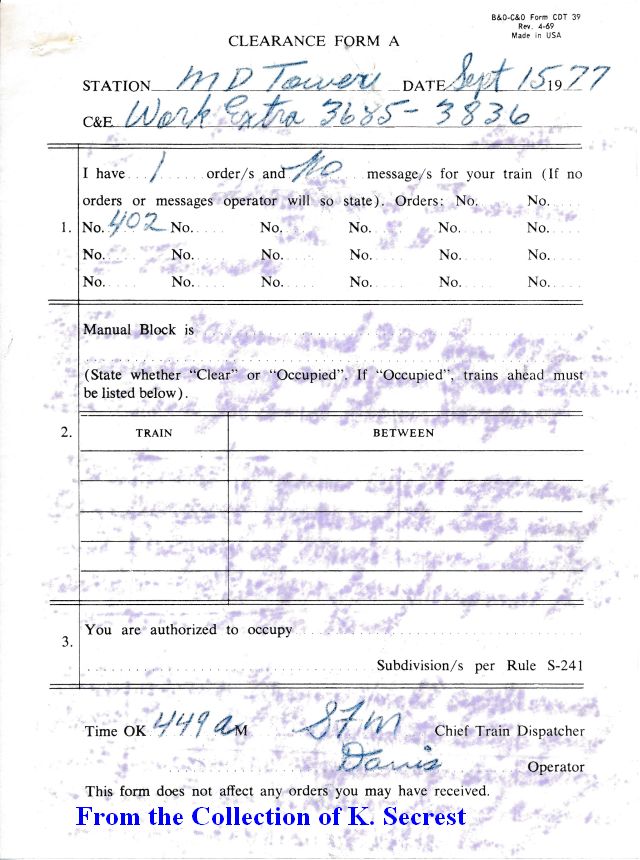 B&O-C&O Form CDT 39
Rev. 4-69
Made in USA
CLEARANCE FORM A
STATION MD Tower DATE Sept 15 1977
C&E Work Extra 3685-3836
I have 1 order/s and No message/s for your train (If no
orders or messages operator will so state). Orders: No. No.
1. No. 402 No. No. No. No. No.
No. No. No. No. No. No.
No. No. No. No. No. No.
Manual Block is
(State whether “Clear” or “Occupied”. If “Occupied”, trains ahead must
be listed below).
2. TRAIN BETWEEN
3. You are authorized to occupy
Subdivision/s per Rule S-241
Time OK 449 a M SFM Chief Train Dispatcher
Davis Operator
This form does not affect any orders you may have received.
From the Collection of K. Secrest